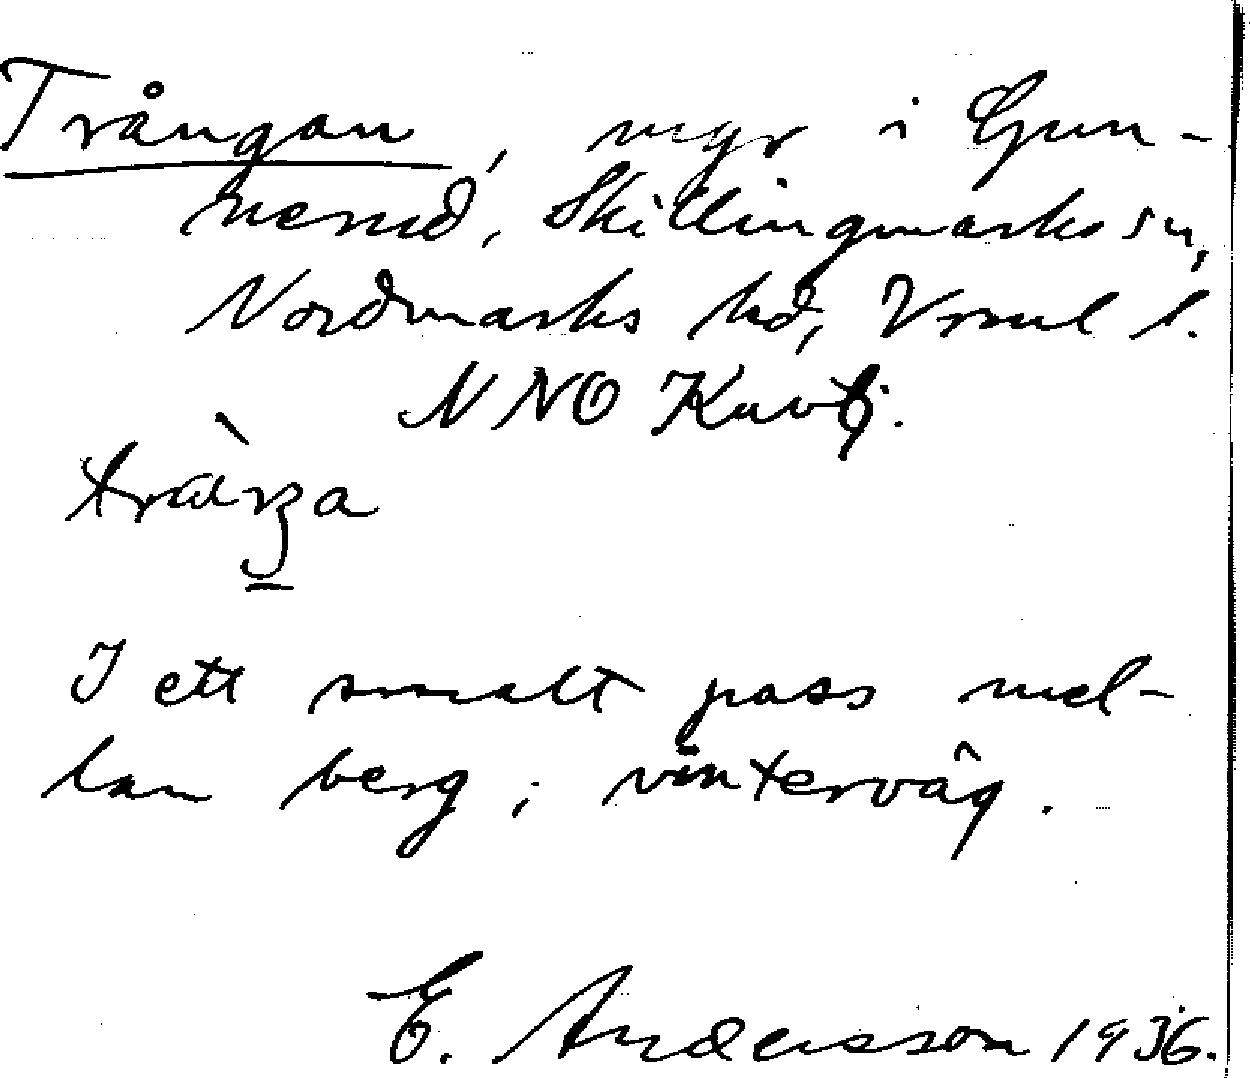 Trångan, myr i Gun-
nerud, Skillingmarks sn,
Nordmarks hd, Vrml l.
NNO
I ett smalt pass mel-
lan berg; vinterväg.
E. Andersson 1936.